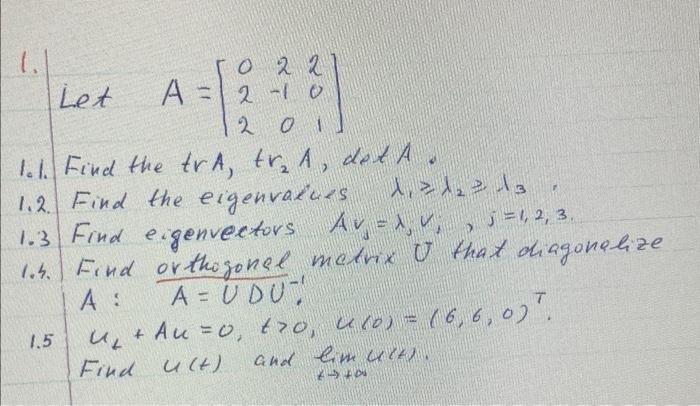 1.
Let A = [ 0 2 2
2 -1 0
2 0 1 ]
1.1. Find the trA, tr₂ A, det A.
1.2. Find the eigenvalues λ₁ ≥ λ₂ ≥ λ₃.
1.3 Find eigenvectors Avⱼ = λⱼ vⱼ, j = 1, 2, 3.
1.4. Find orthogonal matrix U that diagonalize
A : A = U D U⁻¹.
1.5 uₜ + Au = 0, t > 0, u(0) = (6, 6, 0)ᵀ.
Find u(t) and lim u(t).
t → +∞